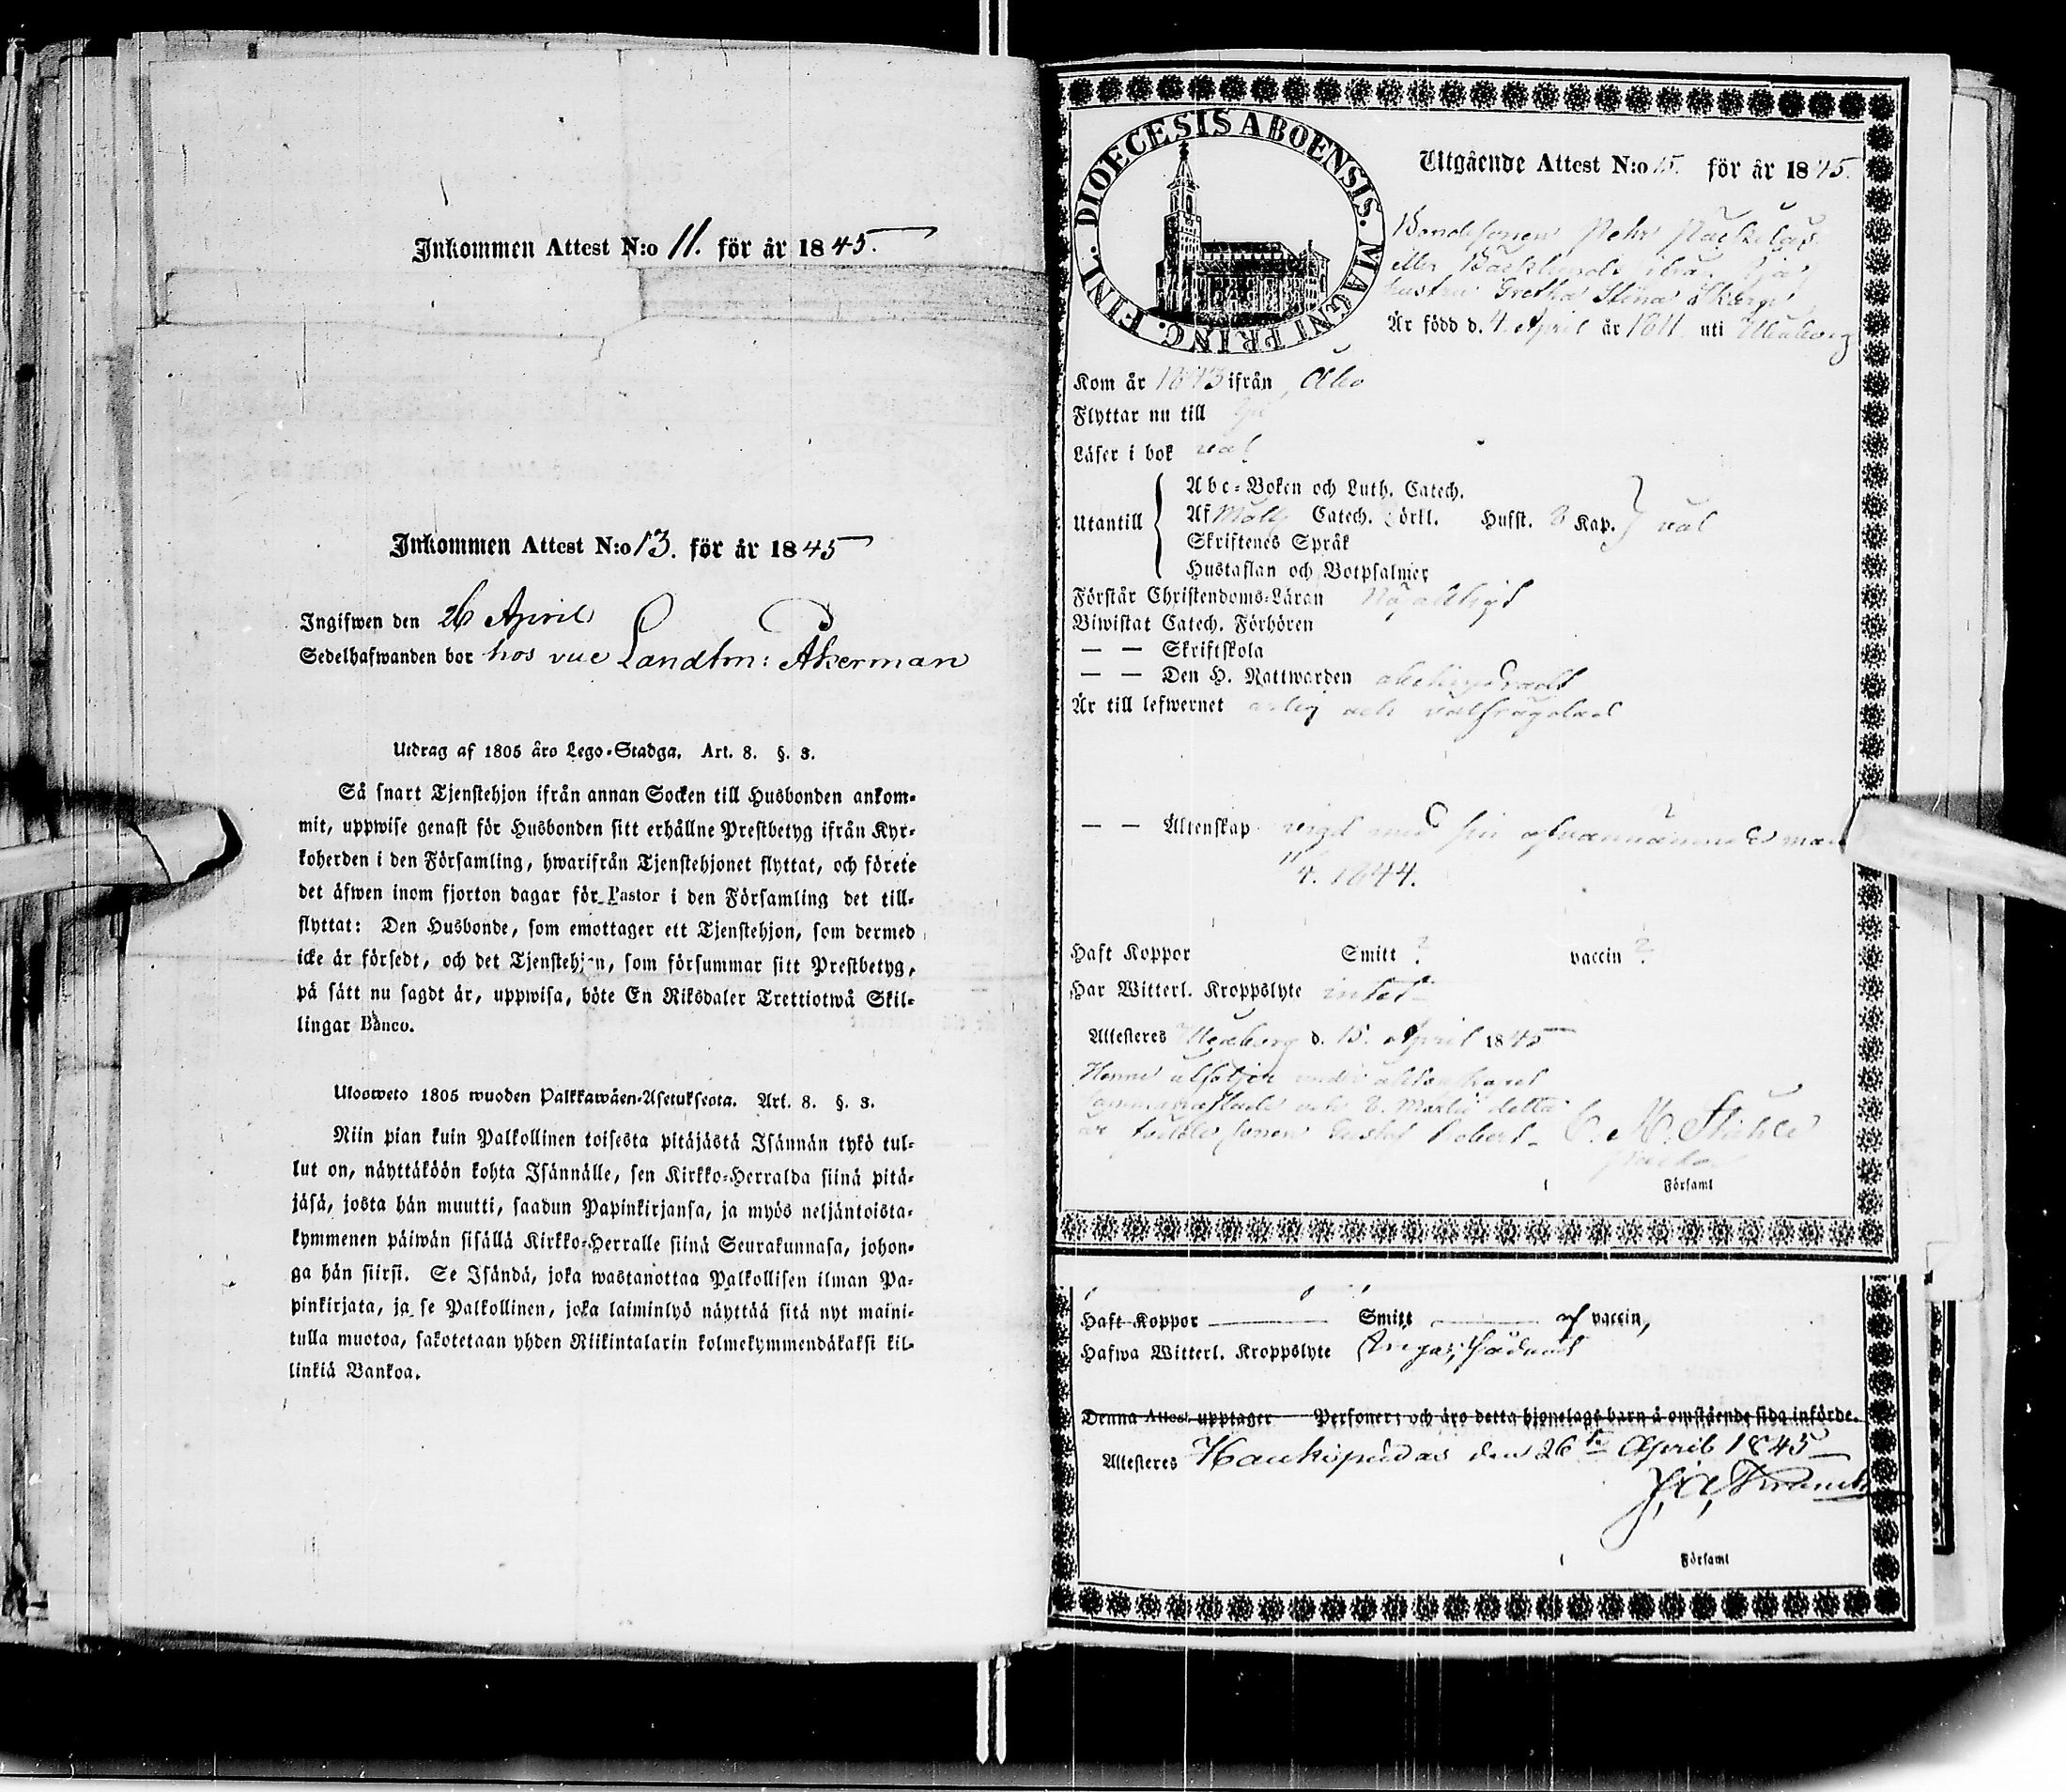 Inkommen Attest N:o 11. för år 1845.
Inkommen Attest N:o 13. för år 1845
Ingifwen den 26 April
Sedelhafwanden bor hos vice Landtm: Åkerman
Utdrag af 1805 års Lego-Stadga. Art. 8. §. 3.
Så snart Tjenstehjon ifrån annan Socken till Husbonden ankom-
mit, uppwise genast för Husbonden sitt erhållne Prestbetyg ifrån Kyr-
koherden i den Församling, hwarifrån Tjenstehjonet flyttat, och förete
det äfwen inom fjorton dagar för Pastor i den Församling det till-
flyttat: Den Husbonde, som emottager ett Tjenstehjon, som dermed
icke är försedt, och det Tjenstehjon, som försummar sitt Prestbetyg,
på sätt nu sagdt är, uppwisa, böte En Riksdaler Trettiotwå Skil-
lingar Banco.
Ulosweto 1805 wuoden Palkkawäen-Asetuksesta. Art. 8. §. 3.
Niin pian kuin Palkollinen toisesta pitäjästä Isännän tykö tul-
lut on, näyttäköön kohta Isännälle, sen Kirkko-Herralda siinä pitä-
jäsä, josta hän muutti, saadun Papinkirjansa, ja myös neljäntoista-
kymmenen päiwän sisällä Kirkko-Herralle siinä Seurakunnasa, johon-
ga hän siirsi. Se Isändä, joka wastanottaa Palkollisen ilman Pa-
pinkirjata, ja se Palkollinen, joka laiminlyö näyttää sitä nyt maini-
tulla muotoa, sakotetaan yhden Riikintalarin kolmekymmendäkaksi kil-
linkiä Bankoa.
DIOECESIS ABOENSIS. MAGNI PRINC. FINL.
Utgående Attest N:o 15. för år 1845.
Bondesonen Pehr
eller Bäcklunds
hustru Gretha Stina
Är född d. 4. April år 1811 uti Uleåborg
Kom år 1843 ifrån Åbo
Flyttar nu till Ijo
Läser i bok väl
Utantill
Abc-Boken och Luth. Catech.
Af Catech. förkl. Hufst. 8 Kap. väl
Skriftenes Språk
Hustaflan och Botpsalmer
Förstår Christendoms-Läran
Biwistat Catech. Förhören
— — Skriftskola
— — Den H. Nattwarden
Är till lefwernet ärlig och välfrägdad
— — Äktenskap vigd med sin ofvannämnde man
11/4. 1844.
Haft Koppor Smitt ? vaccin ?
Har Witterl. Kroppslyte intet
Attesteres Uleåborg d. 15. April 1845
Henne åtföljer under äktenskapet
sammanaflade och d. Martii detta
år födde sonen Gustaf Robert.
Pastor
i Församl
Haft Koppor Smitt af vaccin,
Hafwa Witterl. Kroppslyte
Denna Attest upptager Personer; och äro detta hjonelags barn å omstående sida införde.
Attesteres Haukipudas den 26te April 1845
i Församl